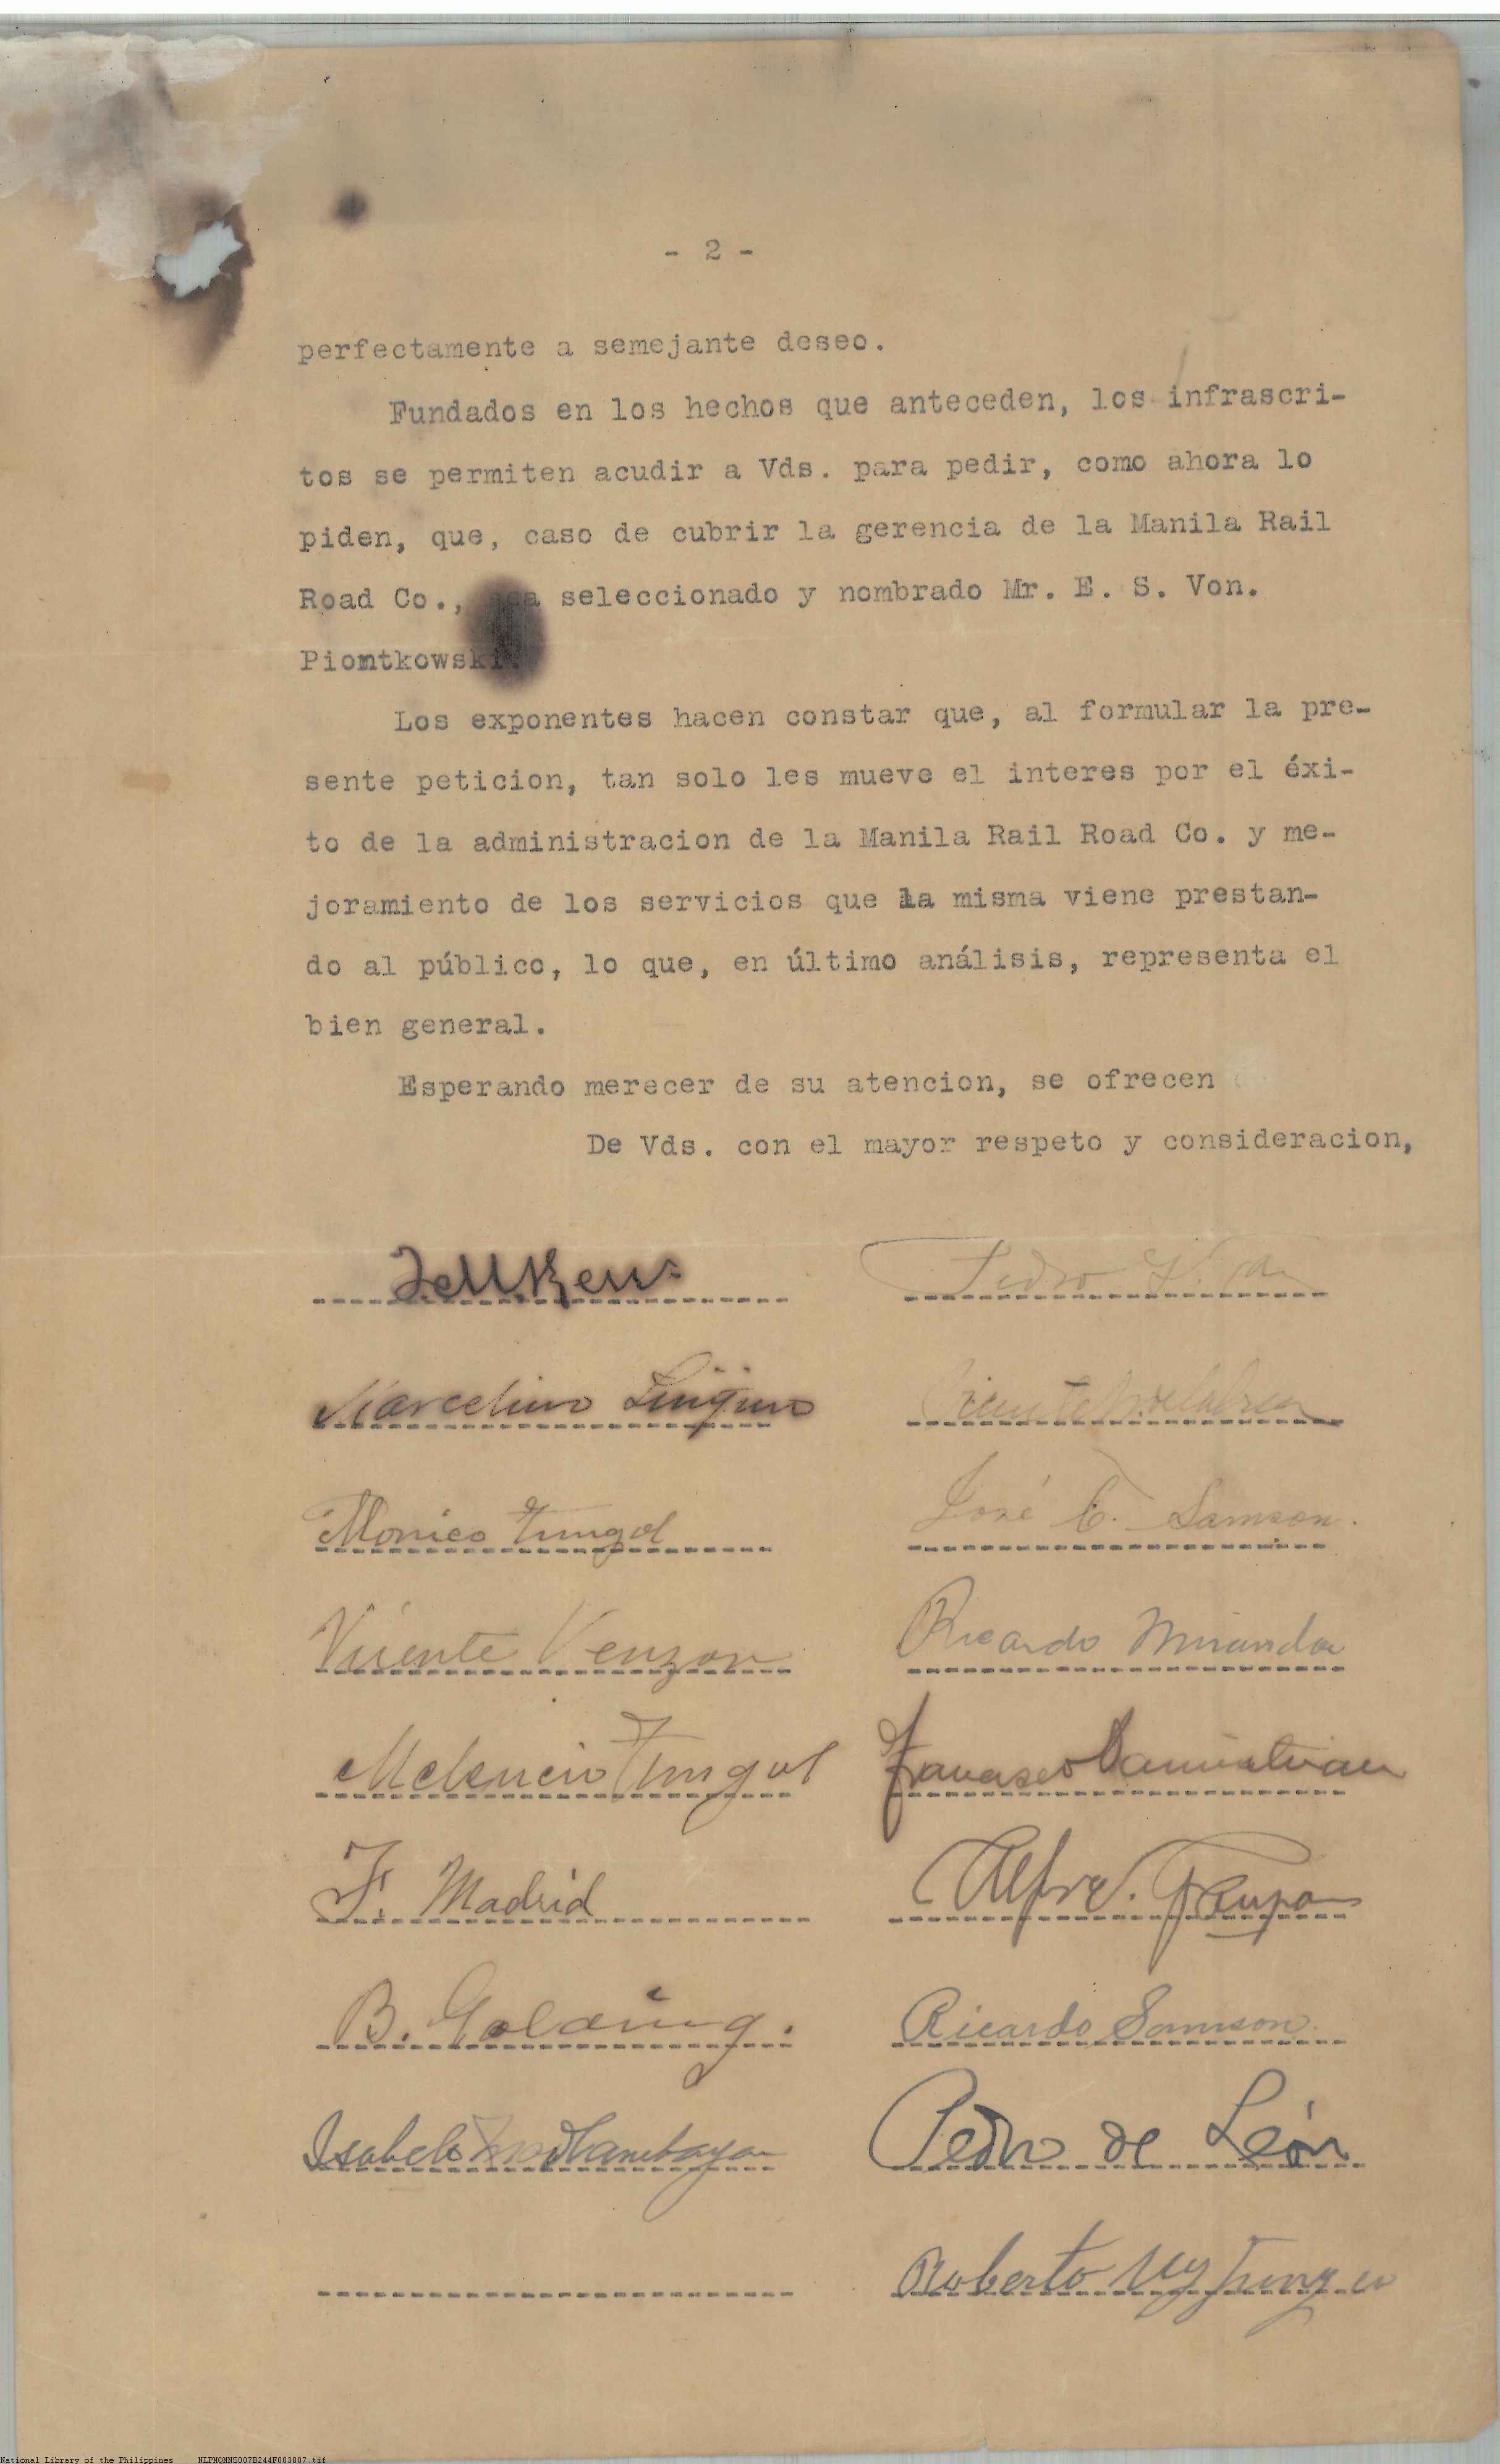 - 2 -
perfectamente a semejante deseo.
Fundados en los hechos que anteceden, los infrascri-
tos se permiten acudir a Vds. para pedir, como ahora lo
piden, que, caso de cubrir la gerencia de la Manila Rail
Road Co., sea seleccionado y nombrado Mr. E. S. Von.
Piomtkowski.
Los exponentes hacen constar que, al formular la pre-
sente peticion, tan solo les mueve el interes por el éxi-
to de la administracion de la Manila Rail Road Co. y me-
joramiento de los servicios que la misma viene prestan-
do al público, lo que, en último análisis, representa el
bien general.
Esperando merecer de su atencion, se ofrecen
De Vds. con el mayor respeto y consideracion,
Pedro
Marcelino
Monico Tungol
José C. Samson.
Vicente Venzon
Ricardo Miranda
Melencio Tungol
Francisco
F. Madrid
B. Golding.
Ricardo Samson.
Isabelo
Pedro de León
Roberto Uy
National Library of the Philippines NLPMQMNS007B244F003007.tif